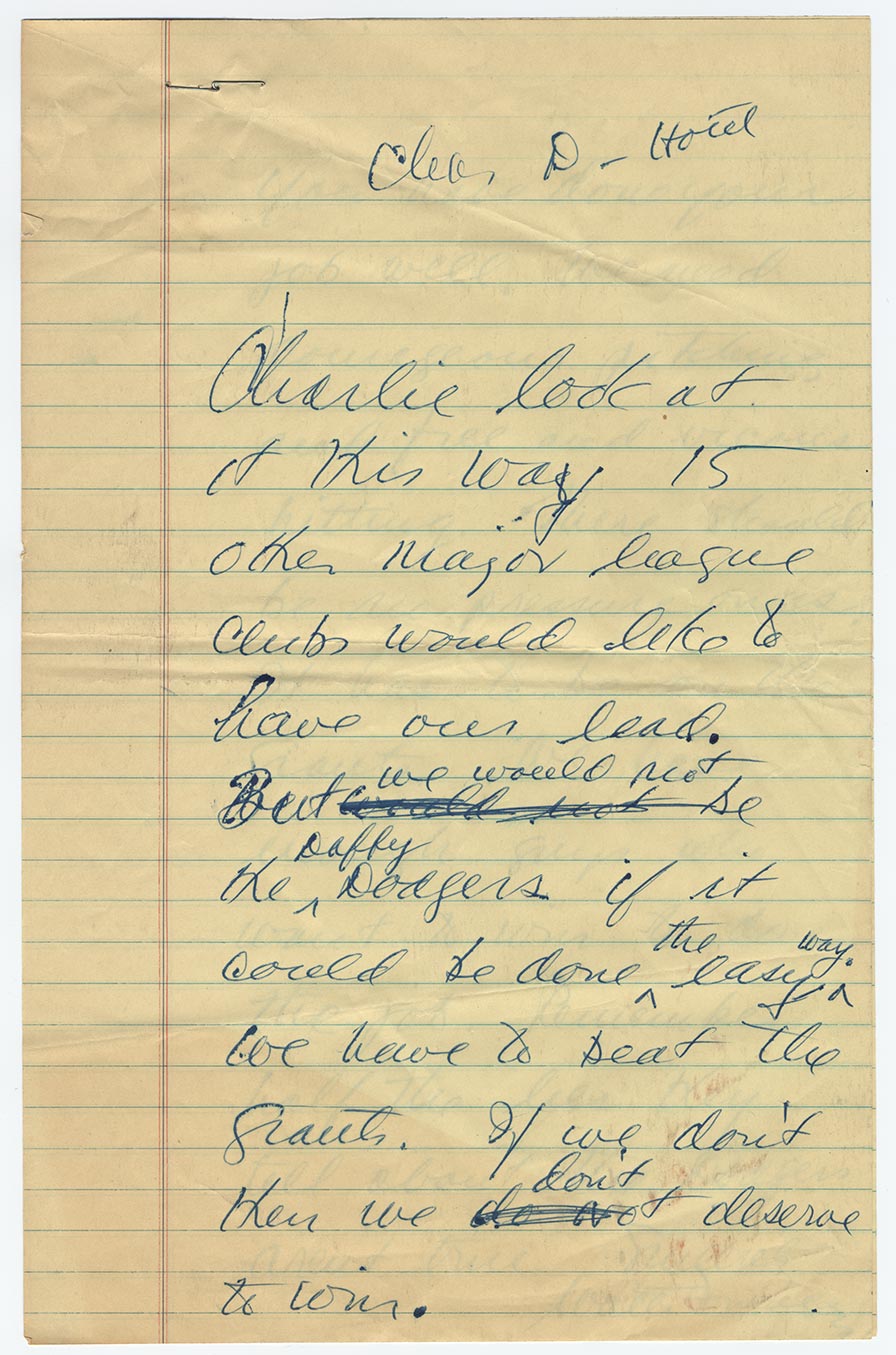 Chas D - Hotel
Charlie look at
it this way 15
other major league
clubs would like to
have our lead.
we would not
But would not be
Daffy
the ^ Dodgers if it
the way.
could be done ^ easy ^
we have to beat the
Giants. If we don't
don't
then we do not deserve
to win.